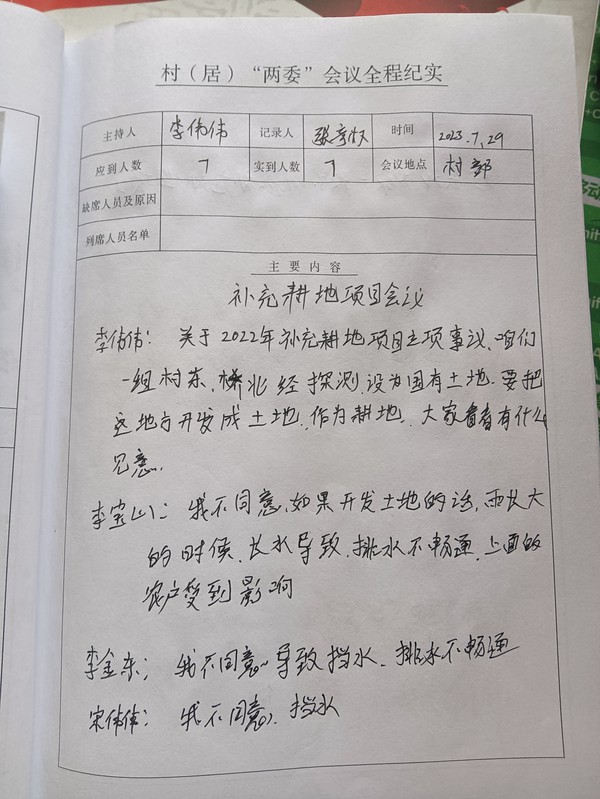 村（居）“两委”会议全程纪实
主持人 李伟伟 记录人 时间 2023.7.29
应到人数 7 实到人数 7 会议地点 村部
缺席人员及原因
列席人员名单
主要内容
补充耕地项目会议
李伟伟：关于2022年补充耕地项目立项事议、咱们
一组村东、桥北经探测、设为国有土地.要把
这地方开发成土地.作为耕地、大家看看有什么
见意.
李宝山：我不同意.如果开发土地的话，雨水大
的时候、长水导致.排水不畅通.上面的
农户受到影响
李金东；我不同意、导致挡水、排水不畅通
宋伟伟：我不同意、挡水